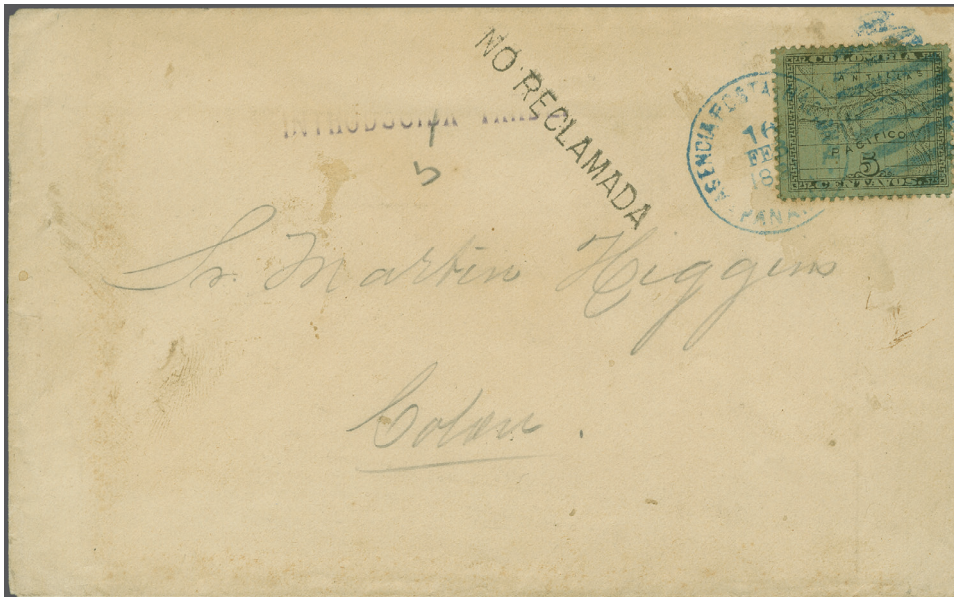 NO RECLAMADA
INTRODUCIDA TARDE
AGENCIA POSTA
16
FE
18
PANA
COLOMBIA
ANTILLAS
PACIFICO
5
5
Sr. Martin Higgins
Colon.